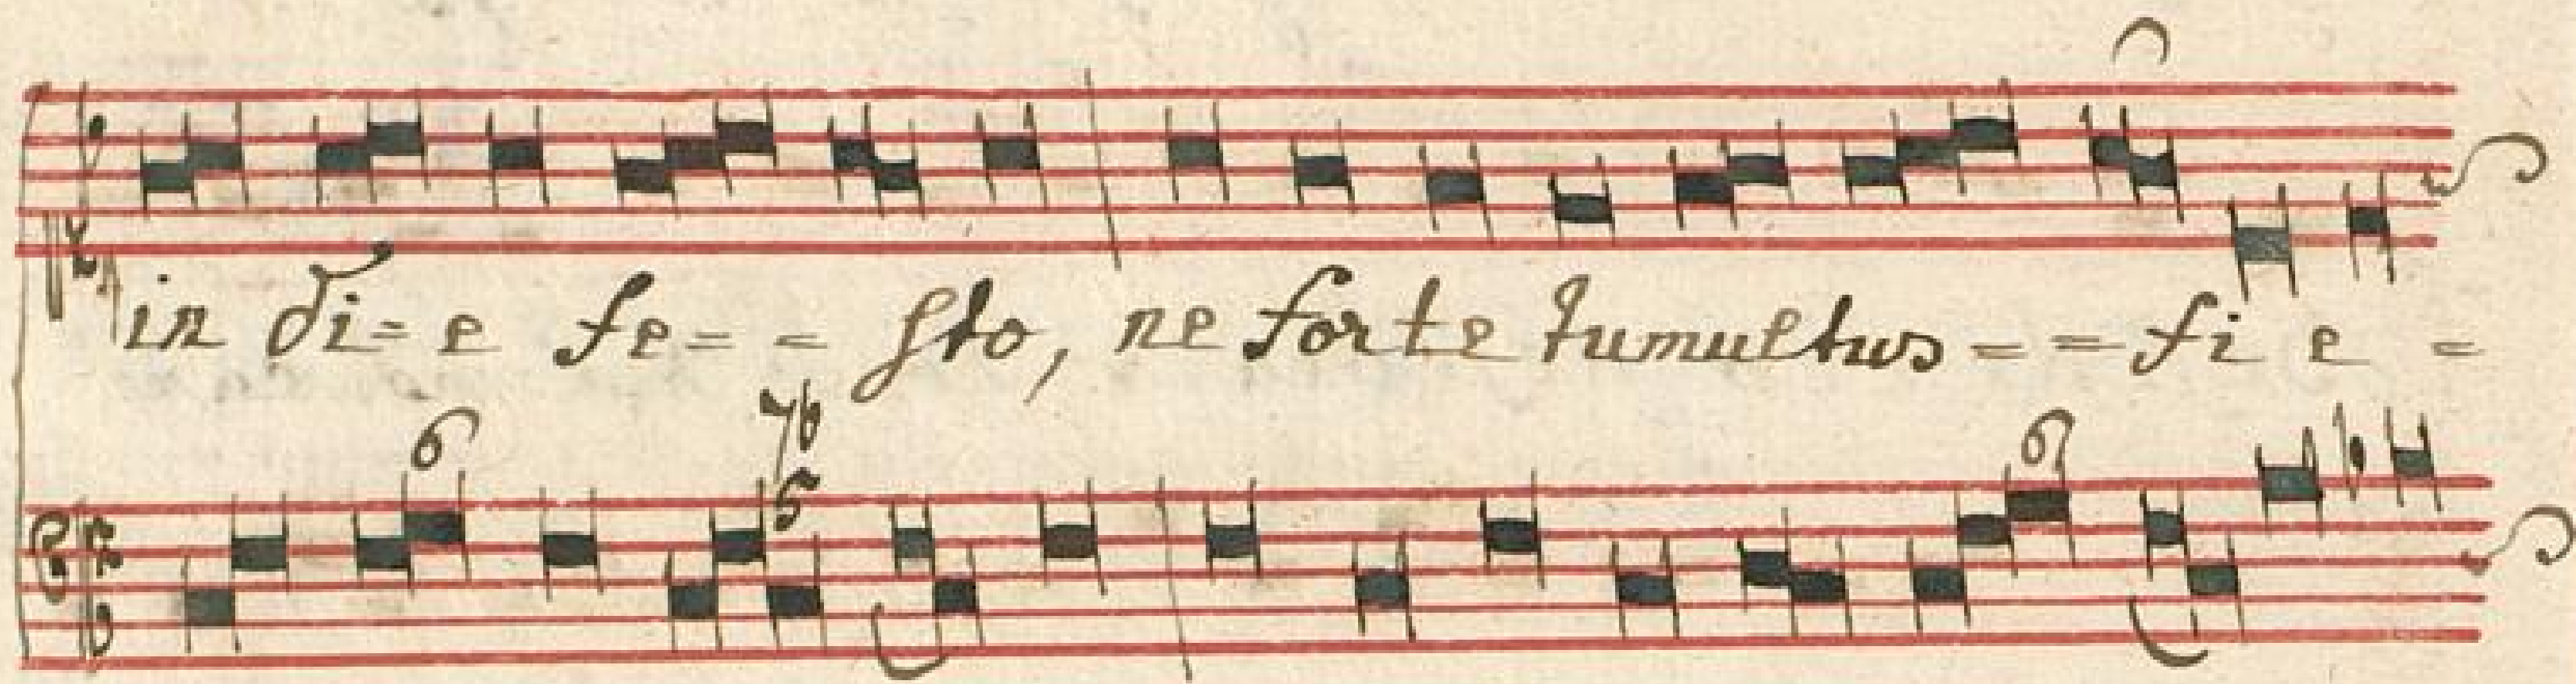 in di= e fe= = sto, ne forte tumultus = = fi e =
6 76 6
5